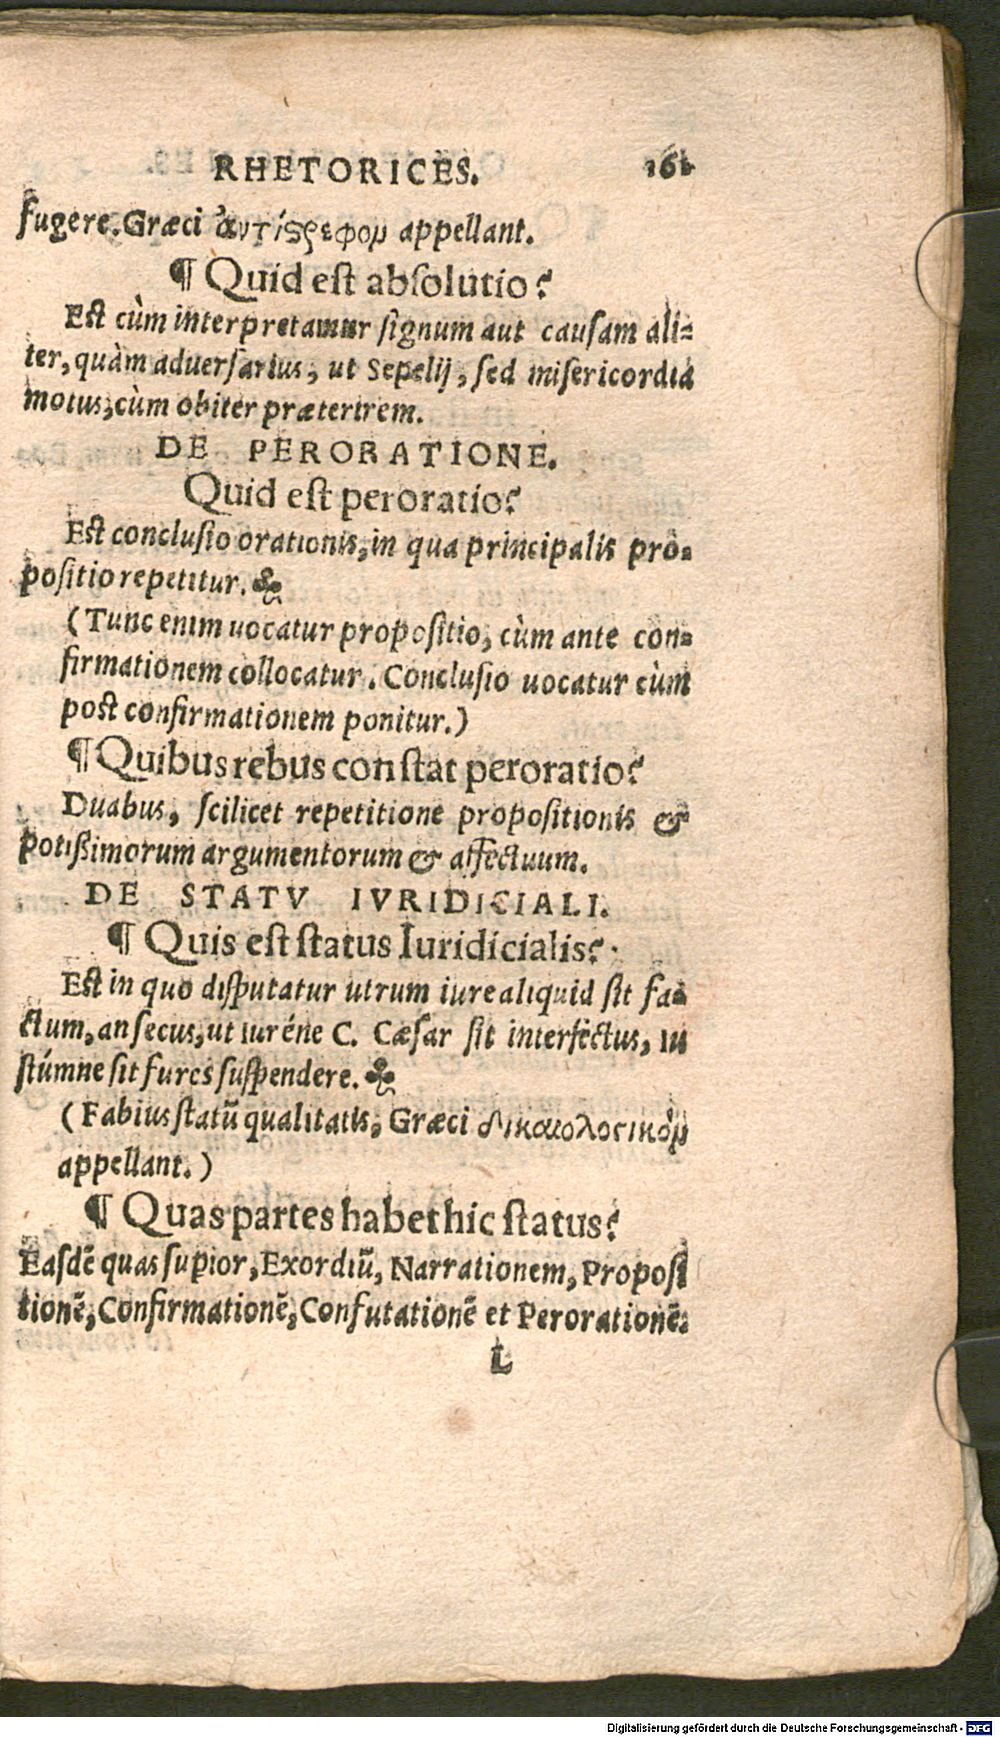 RHETORICES. 161
fugere. Græci ἀντίϛρεφον appellant.
¶ Quid est absolutio?
Est cùm interpretamur signum aut causam ali-
ter, quàm aduersarius, ut Sepelij, sed misericordia
motus, cùm obiter præterirem.
DE PERORATIONE.
Quid est peroratio?
Est conclusio orationis, in qua principalis pro-
positio repetitur. ❧
(Tunc enim uocatur propositio, cùm ante con-
firmationem collocatur. Conclusio uocatur cùm
post confirmationem ponitur.)
¶ Quibus rebus constat peroratio?
Duabus, scilicet repetitione propositionis &
potißimorum argumentorum & affectuum.
DE STATV IVRIDICIALI.
¶ Quis est status Iuridicialis?
Est in quo disputatur utrum iure aliquid sit fa-
ctum, an secus, ut iuréne C. Cæsar sit interfectus, iu
stúmne sit fures suspendere. ❧
(Fabius statũ qualitatis, Græci δικαιολογικὸν
appellant.)
¶ Quas partes habet hic status?
Easdẽ quas supior, Exordiũ, Narrationem, Proposi
tionẽ, Confirmationẽ, Confutationẽ et Perorationẽ.
L
Digitalisierung gefördert durch die Deutsche Forschungsgemeinschaft - DFG